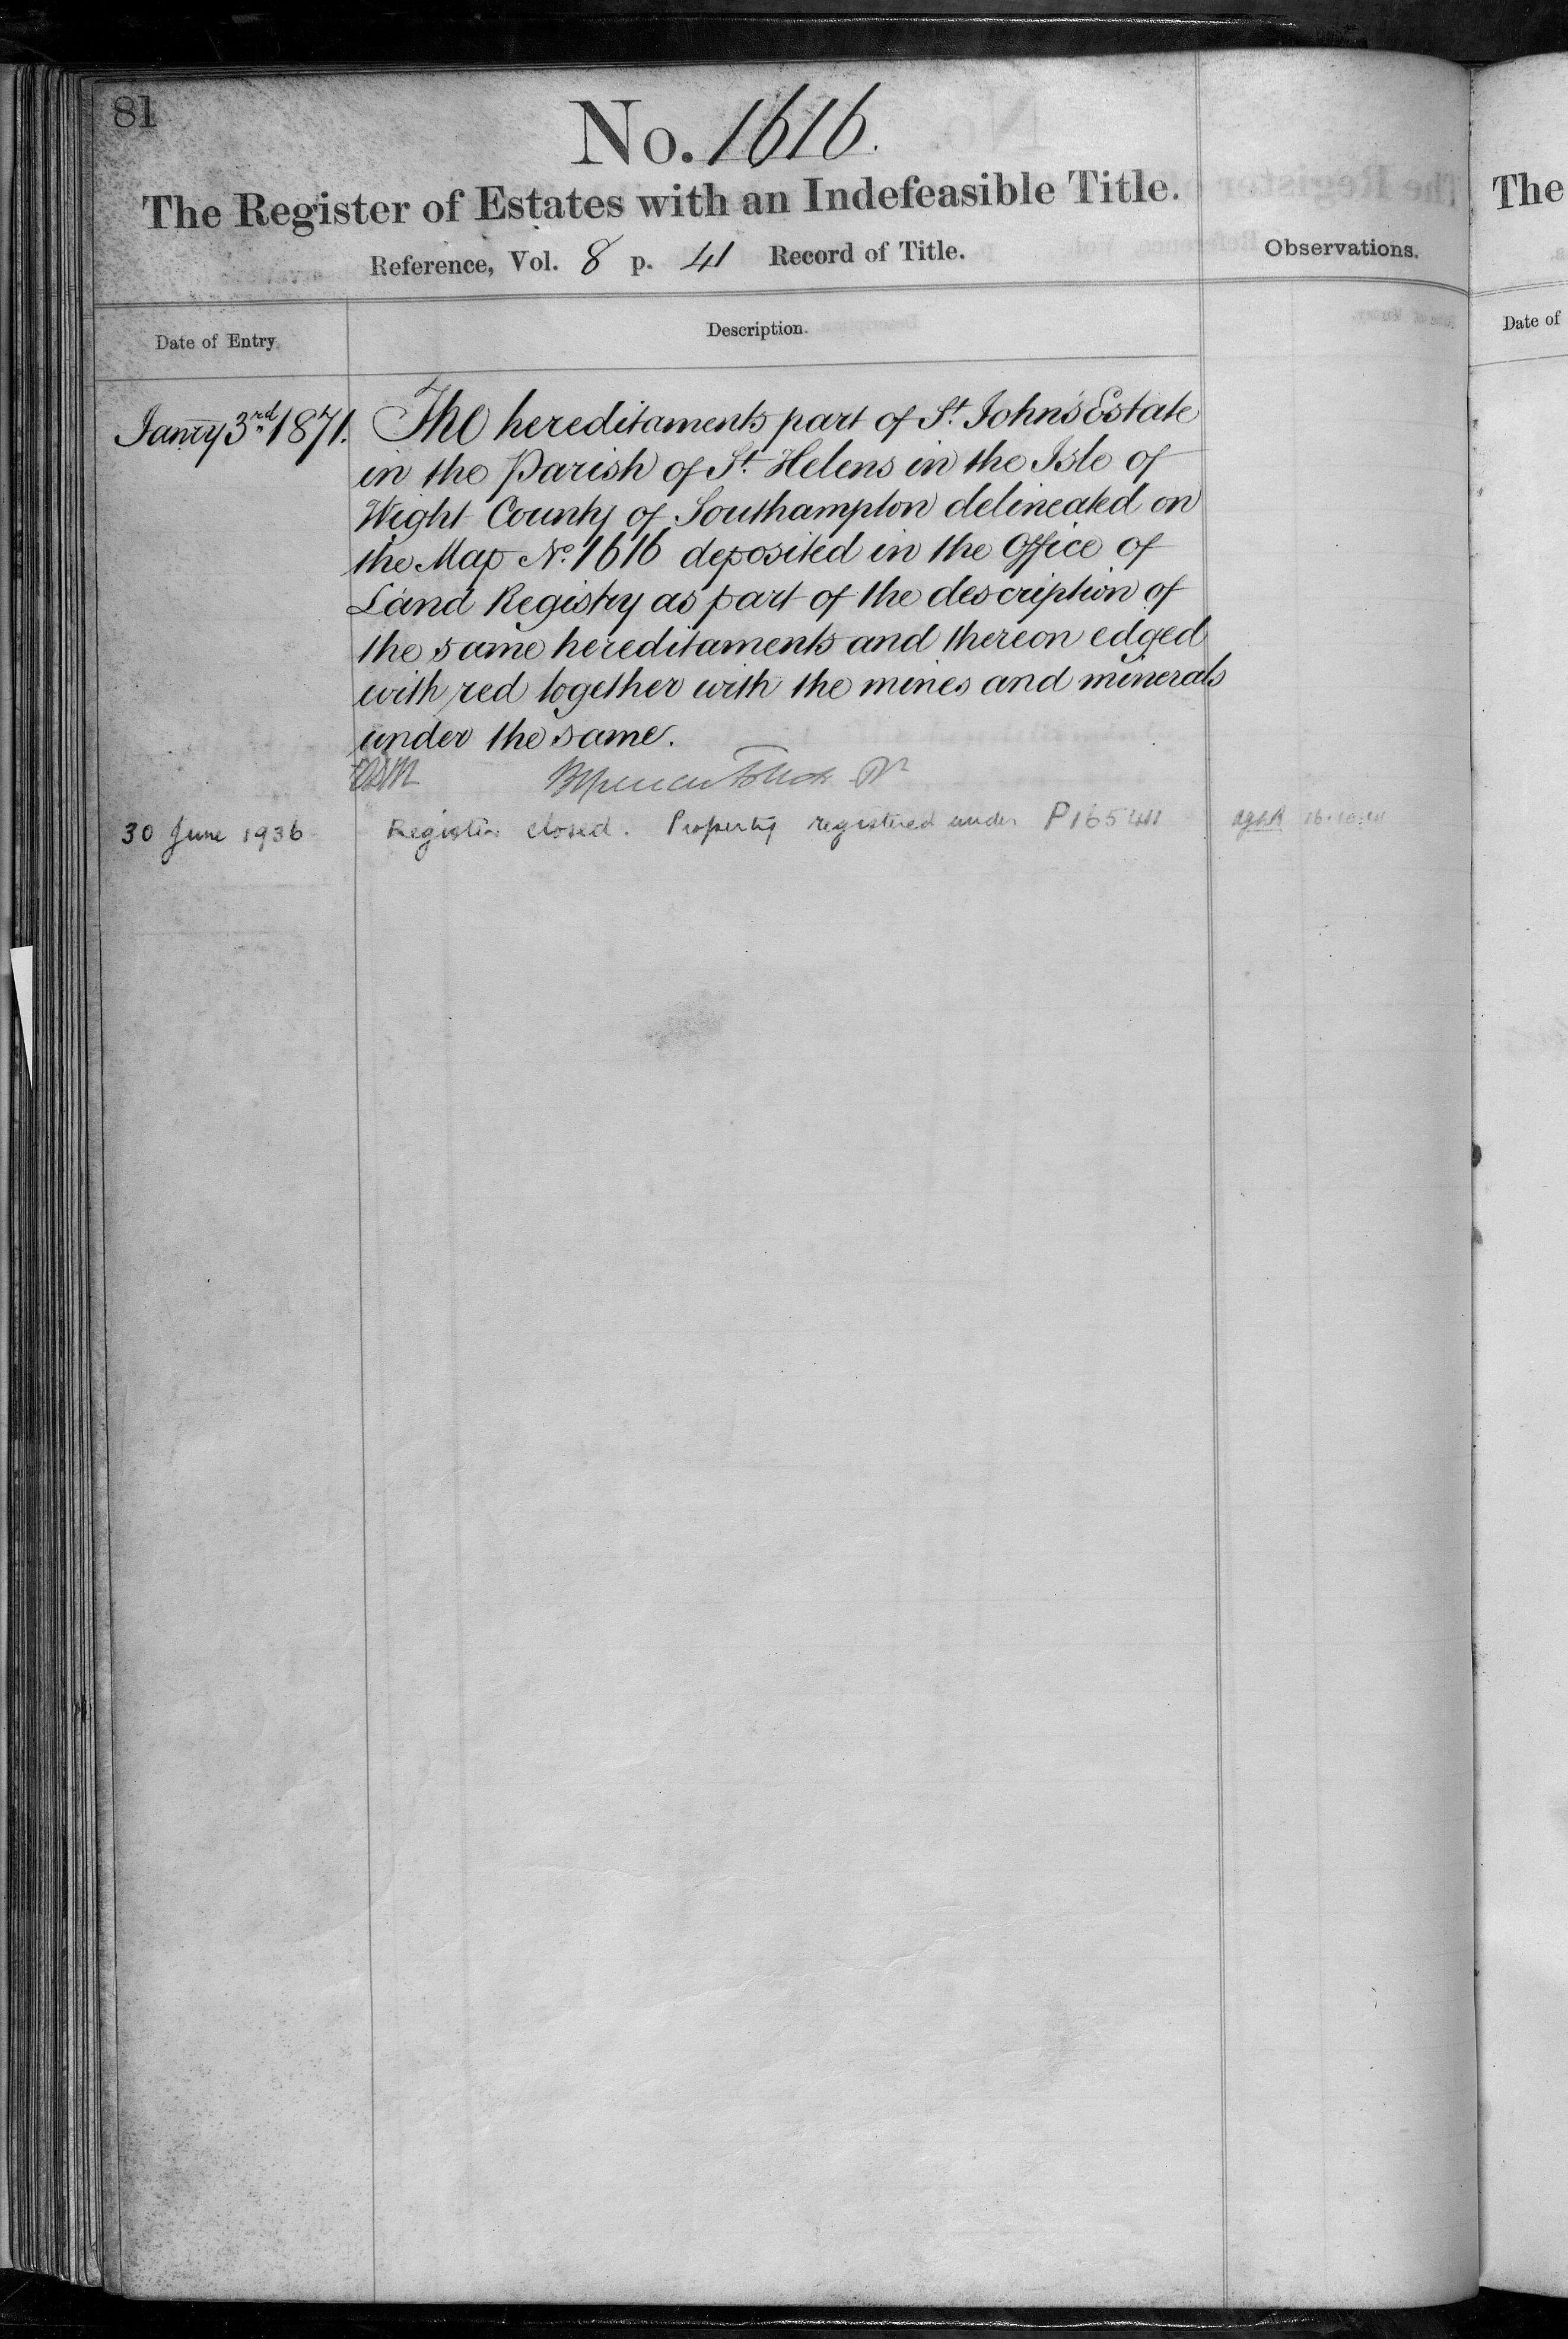 81
No. 1616.
The Register of Estates with an Indefeasible Title.
Reference, Vol. 8 p. 41 Record of Title.
Observations.
Date of Entry.
Description.
Janry 3rd 1871.
The hereditaments part of St. John's Estate
in the Parish of St. Helens in the Isle of
Wight County of Southampton delineated on
the Map No. 1616 deposited in the Office of
Land Registry as part of the description of
the same hereditaments and thereon edged
with red together with the mines and minerals
under the same.
30 June 1936
Register closed. Property registered under P165411
The
Date of